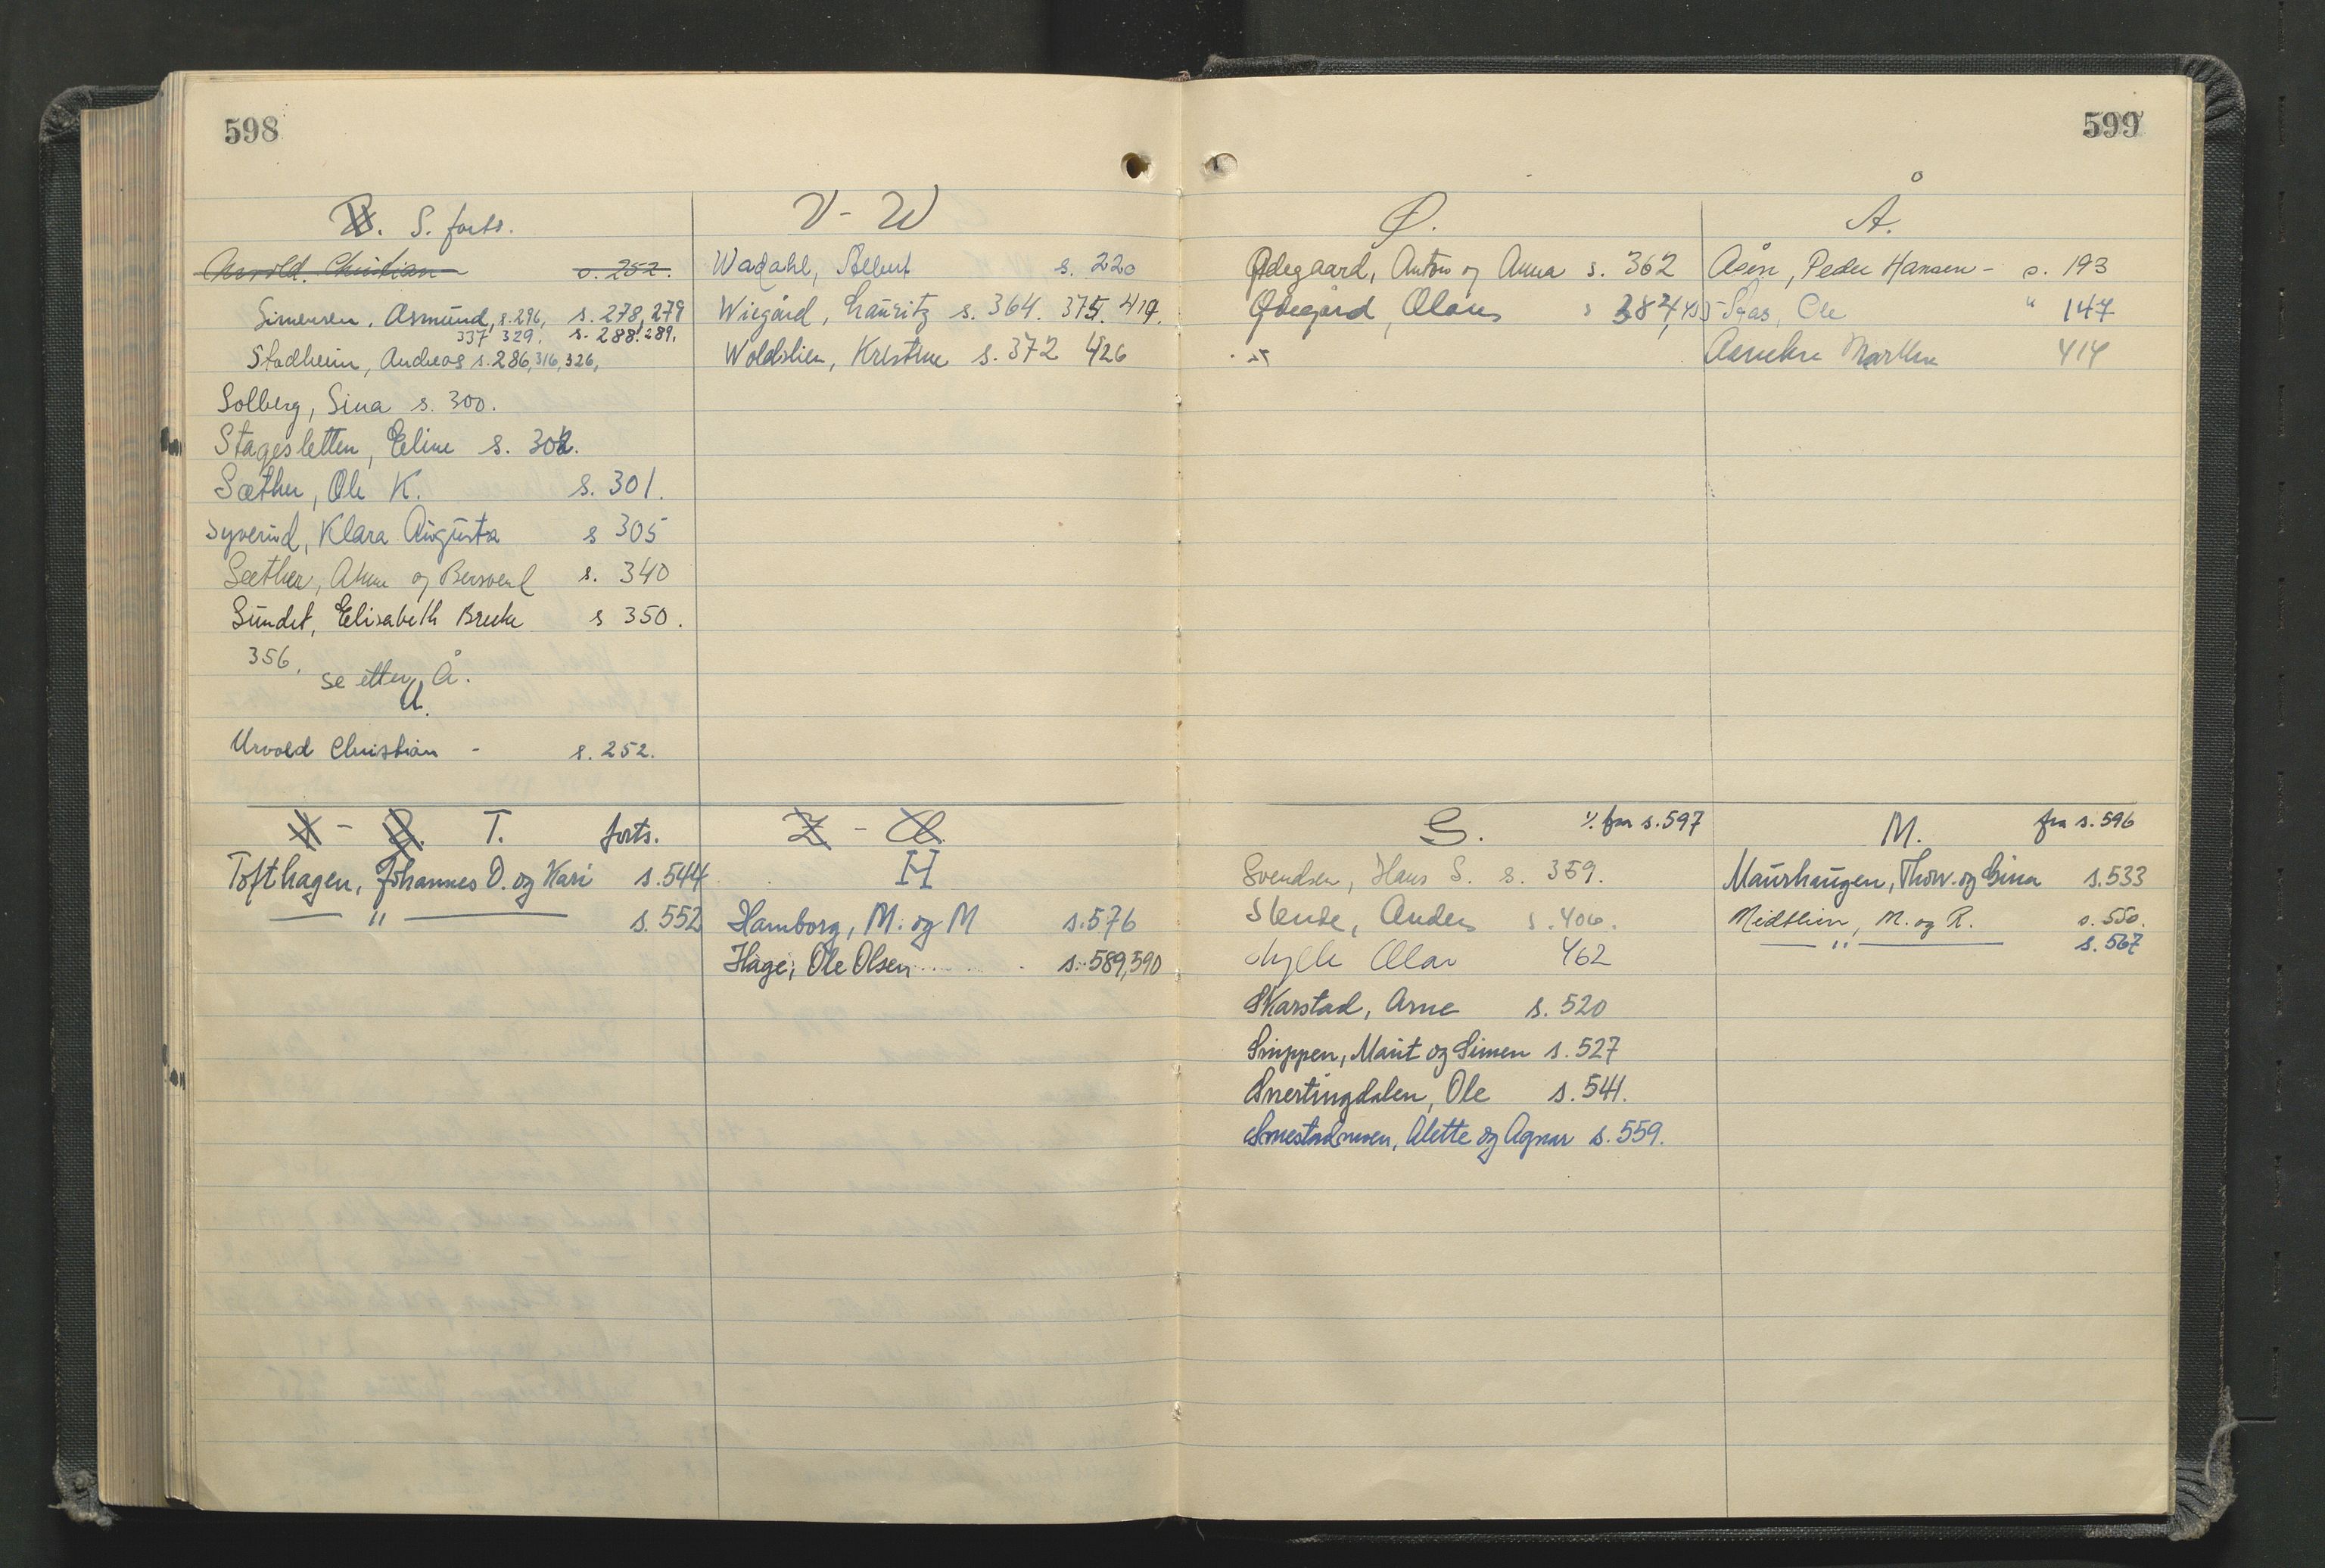 598
S. forts.
Urvold. Christian s. 252.
Simensen, Asmund, s. 296, s. 278, 279
337 329. s. 288. 289.
Stadheim, Andreas s. 286, 316, 326,
Solberg, Sina s. 300.
Stagesletten, Eline s. 302.
Sæther, Ole K. s. 301.
Syverud, Klara Augusta s 305
Sæther, Anne og Bersvend s. 340
Sundet, Elisabeth s 350.
356.
se etter Å.
U.
Urvold Christian - s. 252.
V - W
Wadahl, Albert s. 220
Wiegård, Lauritz s. 364. 375. 419.
Woldslien, Kristine s. 372 426
X - T. forts.
Tofthagen, Johannes O. og Kari s. 544
— " — s. 552
Z - Ø
H
Hamborg, M. og M s. 576
Hage, Ole Olsen s. 589, 590
599
Ø.
Ødegaard, Anton og Anna s. 362
Ødegård, Olaus s 384, 455
Å.
Åsen, Peder Hansen - s. 193
Ole " 147
414
S. % fra s. 597
Svendsen, Hans S. s. 359.
Stende, Anders s. 406.
Olav 462
Skarstad, Arne s. 520
Snippen, Marit og Simen s. 527
Snertingdalen, Ole s. 541.
Smestadmoen, Alette og Agnar s. 559.
M. fra s. 596
Maurhaugen, Thorv. og Gina s. 533
Midtlien, M. og R. s. 550.
— " — s. 567